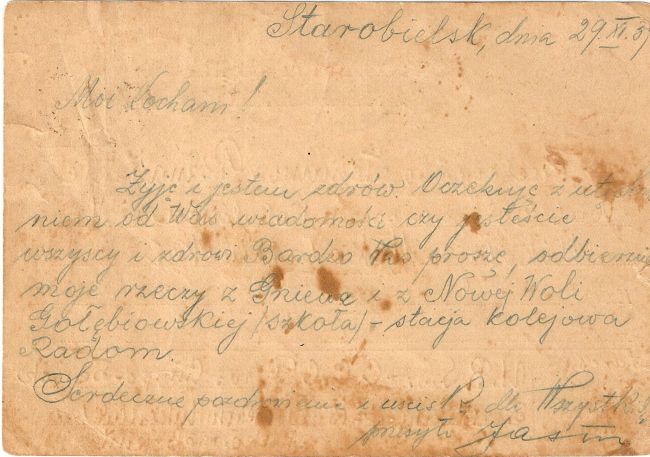 Starobielsk, dnia 29.XI.39
Moi Kochani!
Żyję i jestem zdrów. Oczekuję z utęsknie
niem od Was wiadomości czy jesteście
wszyscy i zdrowi. Bardzo Was proszę, odbierzcie
moje rzeczy z Gniewa i z Nowej Woli
Gołębiowskiej (szkoła) – stacja kolejowa
Radom.
Serdeczne pozdrowienia i uścisk dla Wszystkich
przesyła